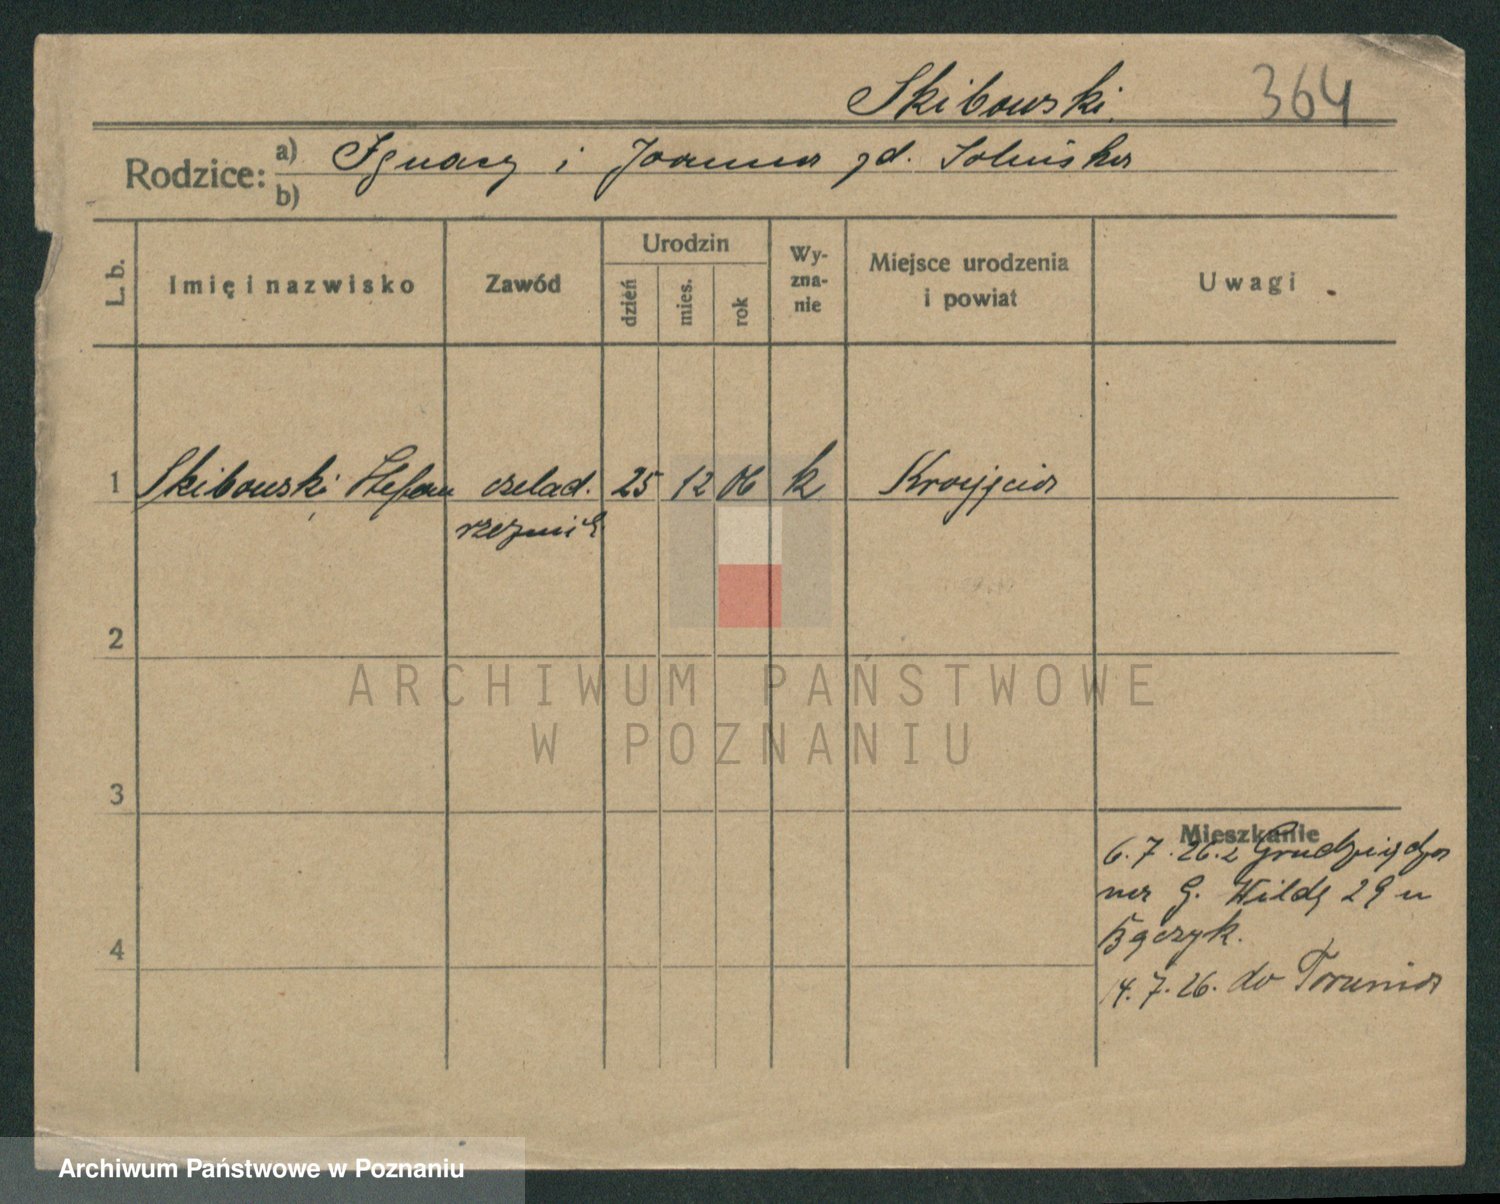 Skibowski.
364
Rodzice:
a) Ignacy i Joanna zd. Soluńska
b)
L. b.
Imię i nazwisko
Zawód
Urodzin
dzień
mies.
rok
Wy-
zna-
nie
Miejsce urodzenia
i powiat
Uwagi
1 Skibowski Stefan czelad. 25 12 06 k
rzeźnik
2
3
4
Mieszkanie
6.7.26. z Grudziądza
na G. Wildę 29 u
14.7.26. do Torunia
ARCHIWUM PAŃSTWOWE
W POZNANIU
Archiwum Państwowe w Poznaniu